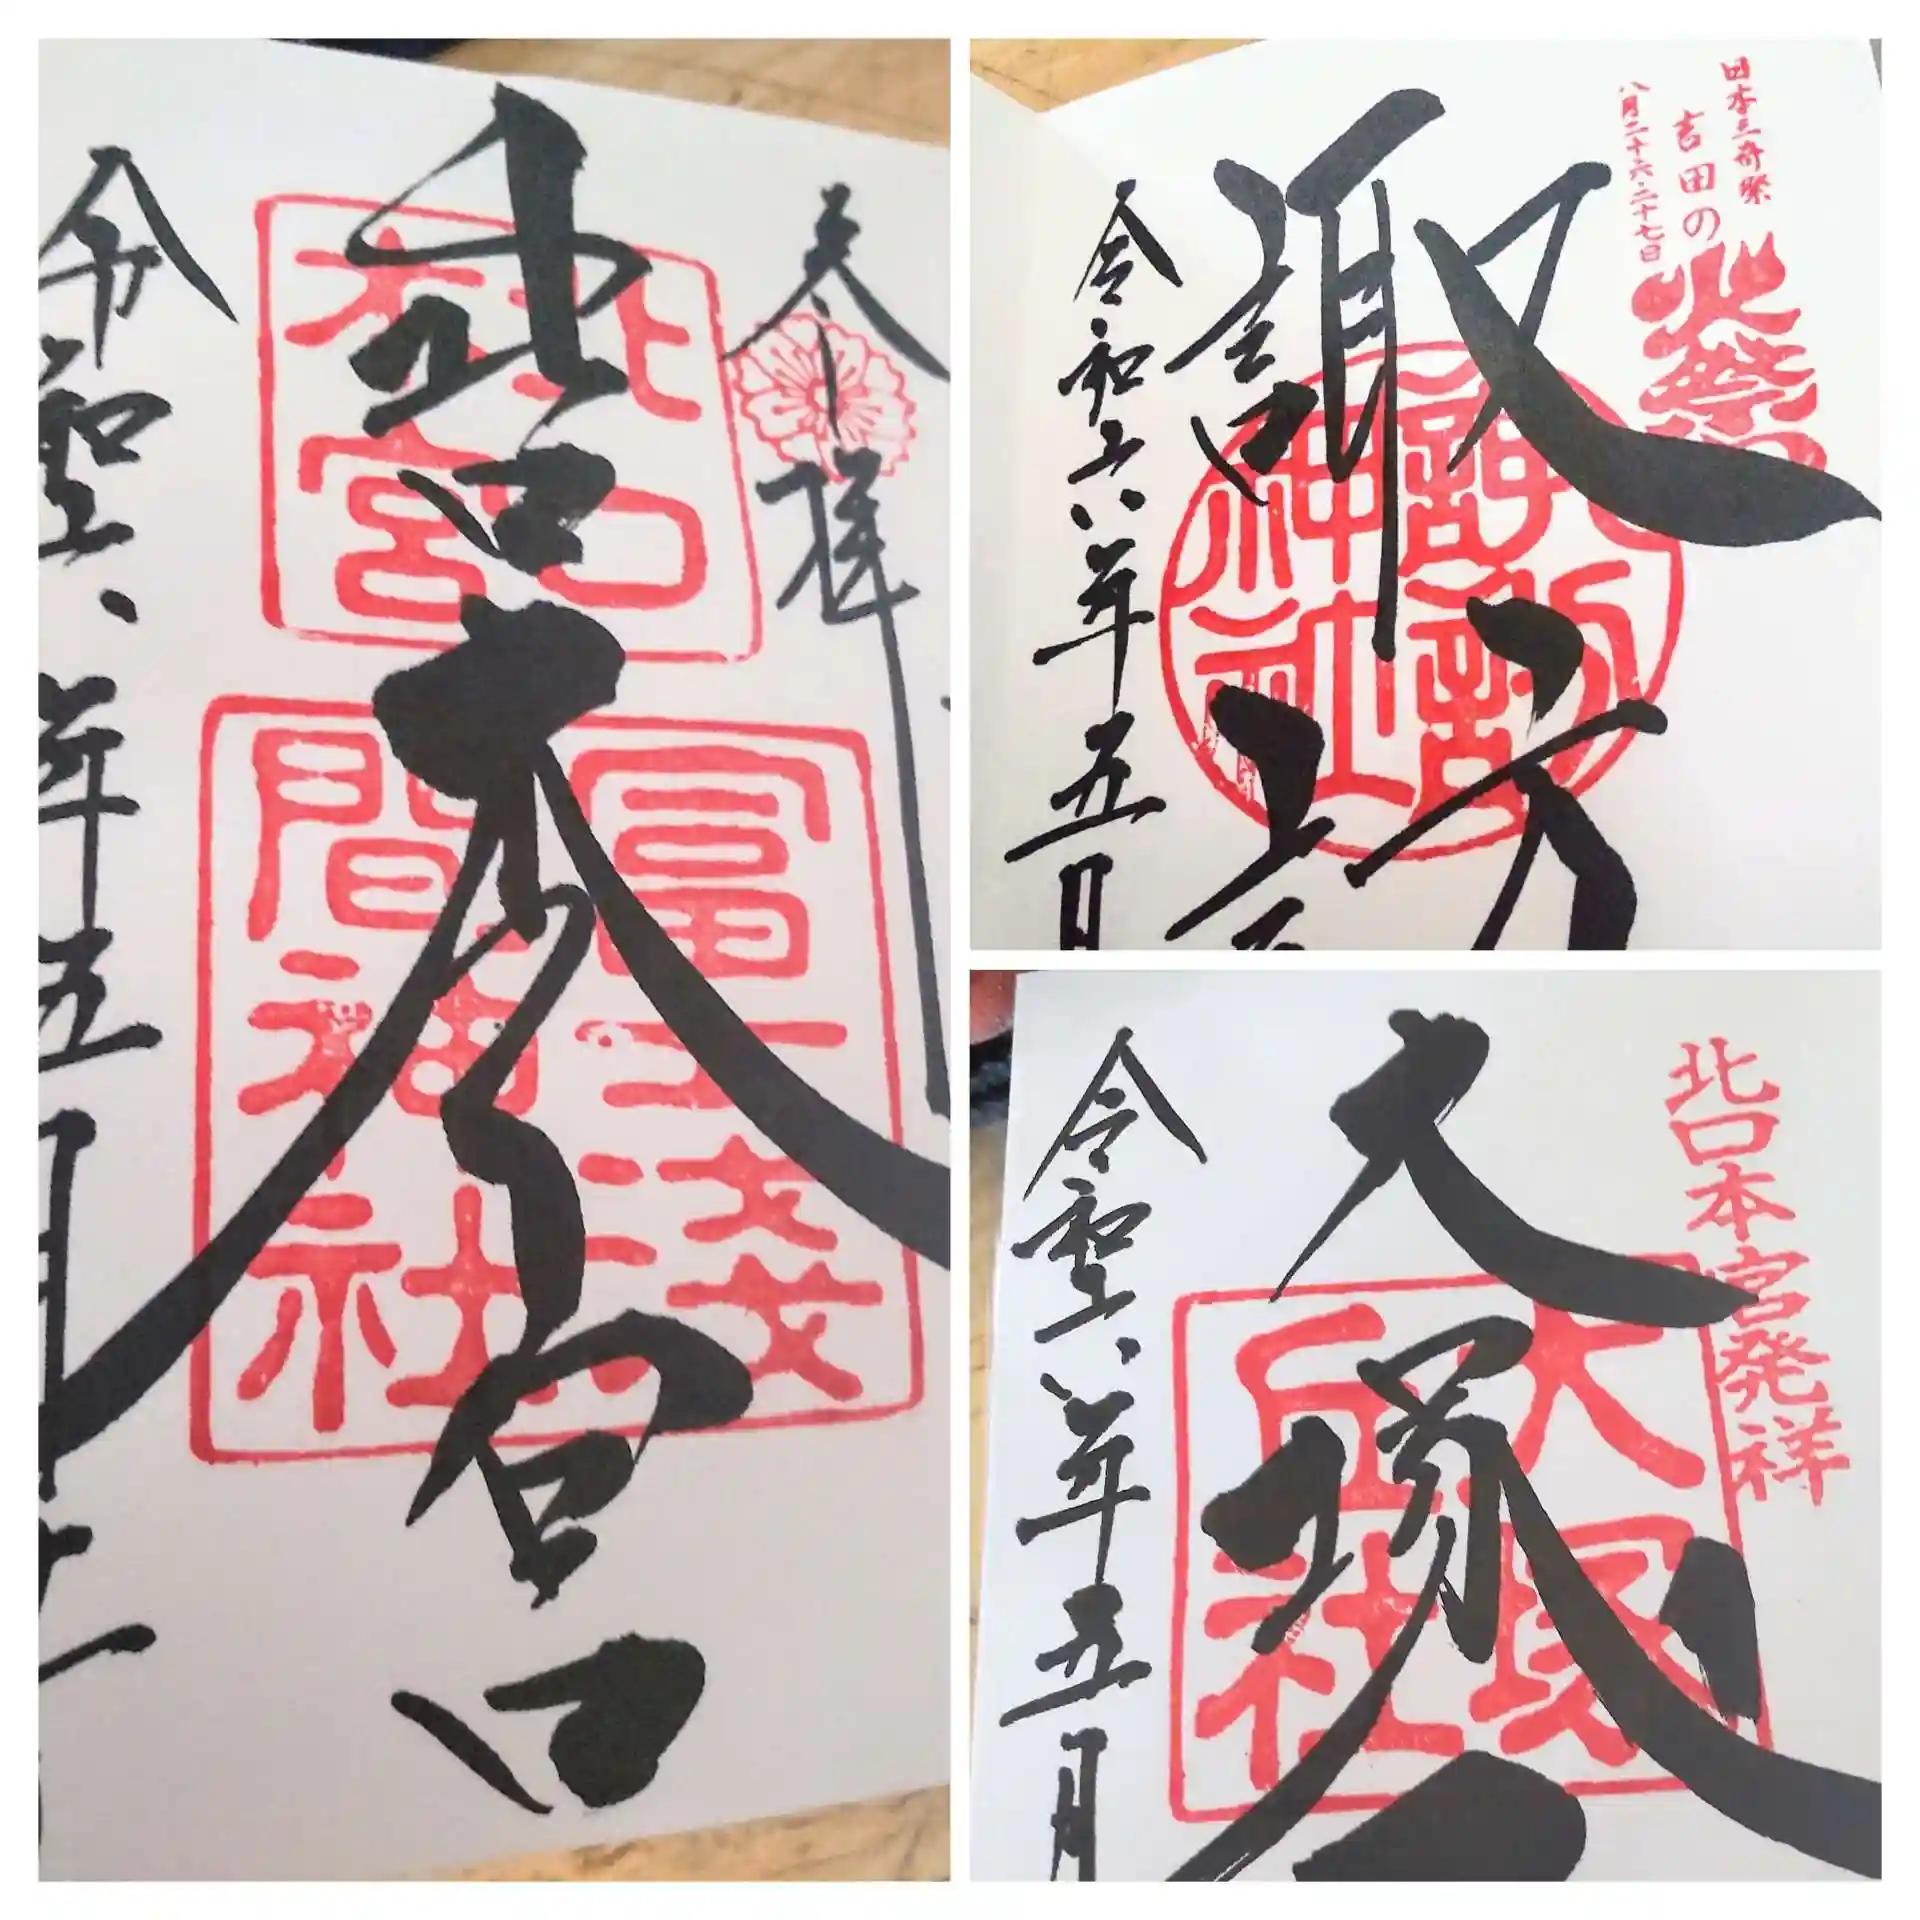 参拝
北口本宮
北口
本宮
冨士浅
間神社
令和六年五月
日本三奇祭
吉田の火祭
八月二十六・二十七日
諏訪
諏訪
神社
令和六年五月
北口本宮発祥
大塚
大塚
丘社
令和六年五月